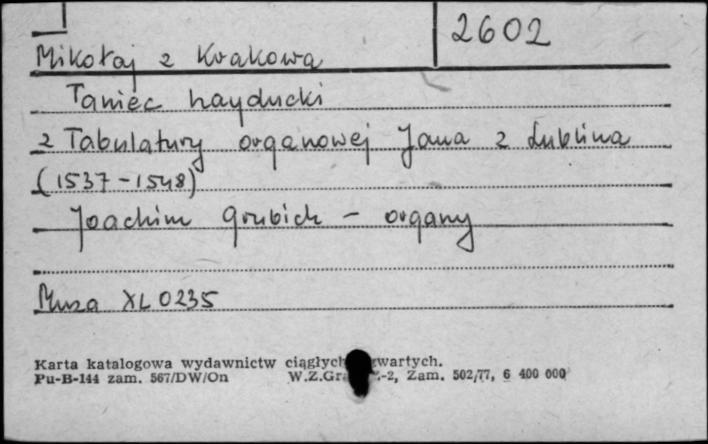 2602
Mikołaj z Krakowa
Taniec hayducki
z Tabulatury organowej Jana z Lublina
(1537-1548)
Joachim Grubich - organy
Muza XL 0235
Karta katalogowa wydawnictw ciągłych
Pu-B-144 zam. 567/DW/On W.Z.Gra -2, Zam. 502/77, 6 400 000